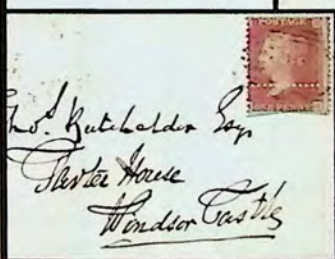 POSTAGE
Thos. Batcheldor Esqr
House
Windsor Castle